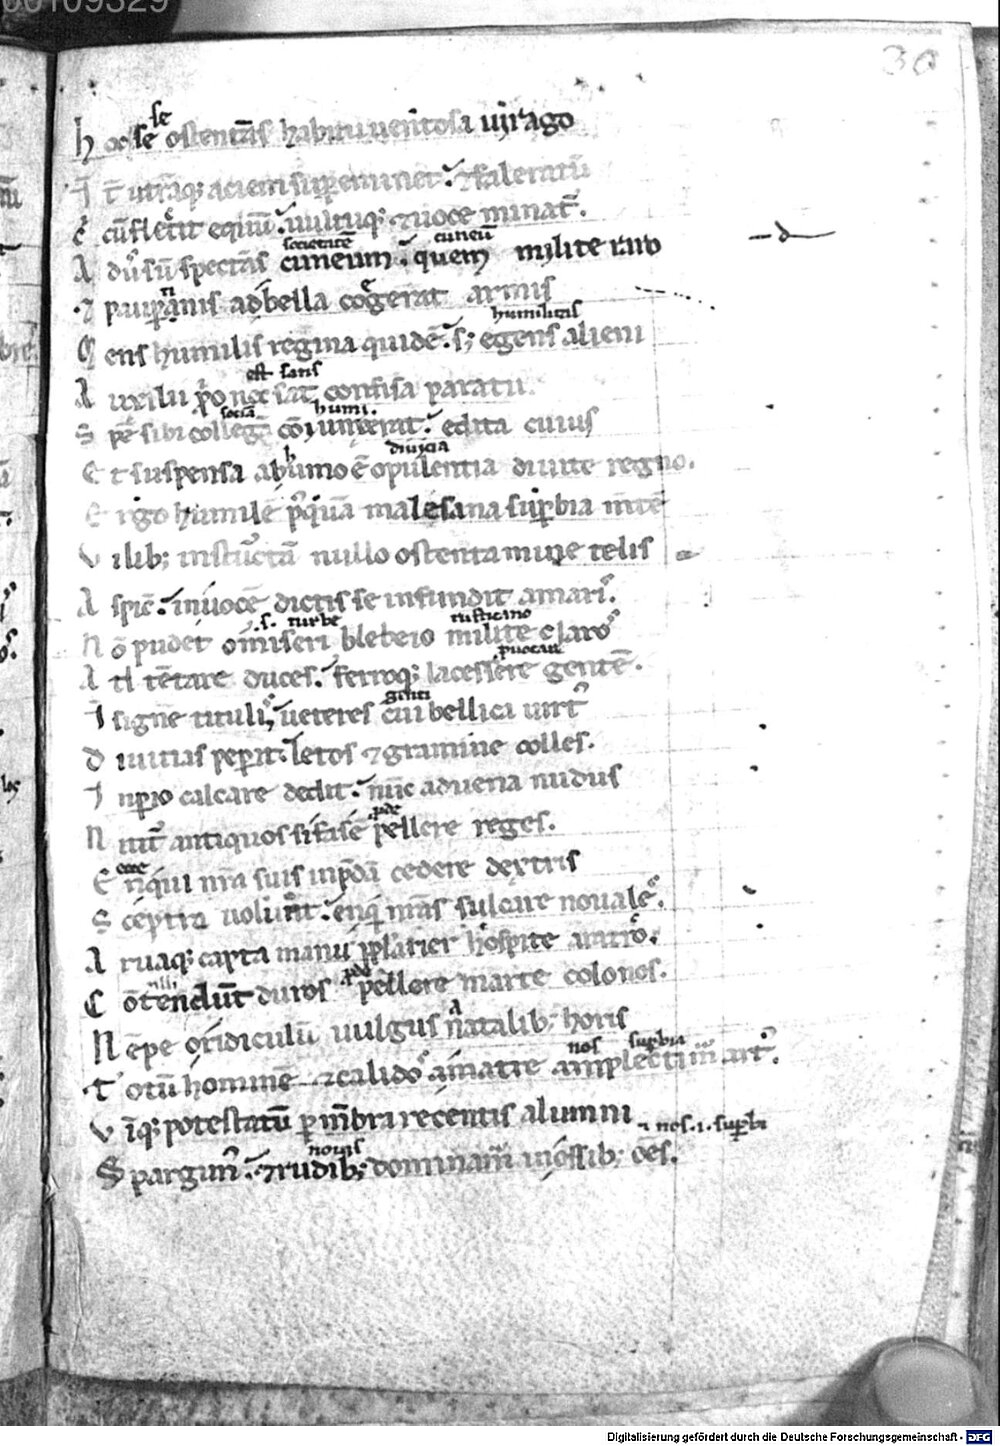 00109329
30
se
h oc se ostentās habitu uentosa uirago
I t̄ utrāq; aciem supeminet. & faleratū
C̄ cū flectit equū. uultuq; & uoce minat̄.
societatē cuneū
A duˢū spectās cuneum. quem milite raro
⁊ paupanis ad bella cogerat armis
humilitas
G ens humilis regina quidē. s; egens alieni
est satis
A uxilii pro nox sat confisa paratu
sociā humi.
S pē sibi collegā coniunxerat. edita cuius
diuicia
E t suspensa ab humo ē opulentia diuite regno.
E rgo humilē pquā malesana supbia mentē
V ilib; instructā nullo ostentamine telis
A spicē. in uocē dictis se infundit amaris.
.s. turbe rusticano
N ō pudet o miseri blebeio milite claros
prouocare
A tt̄ tētare duces. ferroq; lacessere gentē.
genti
I signē titulis ueteres cui bellica uirtˢ
D iuitias peperit. letos & gramine colles.
I nperio calcare dedit. nūc aduena nudus
pde
N itit̄ antiquos si fas ē pellere reges.
esse
E n qui nr̄a suis in pdā cedere dextris
S ceptra uolunt. en qui nr̄as sulcare nouales.
A ruaq; capta manu popularier hospite aratro.
illi pde
C ōtendūt duros & pellere marte colonos.
N ēpe o ridiculū uulgus natalib; horis
nos supbia
T otū hominē & calidos a matre amplectimur artˢ.
V īq; potestatū p mēbra recentis alumni
nouis ⁊ nos .i. supbi
S pargimˢ. & rudib; dominam in ossib; oēs.
Digitalisierung gefördert durch die Deutsche Forschungsgemeinschaft - DFG